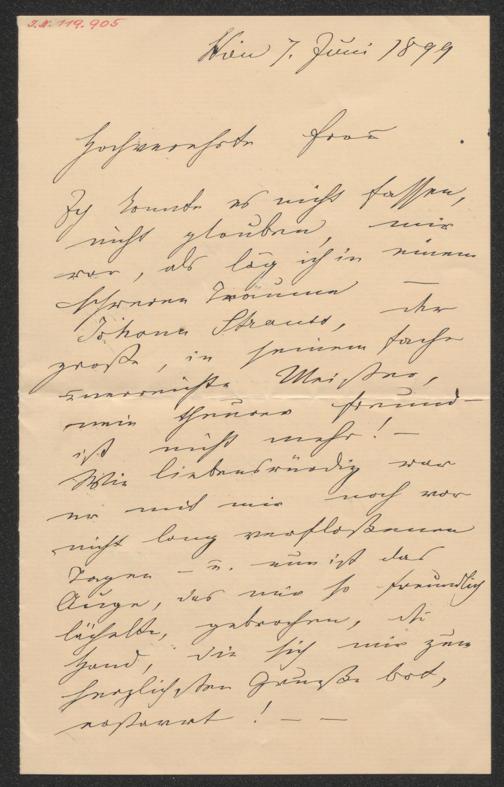 J.N. 119.905
Wien 7. Juni 1899
Hochverehrte Frau
Ich konnte es nicht fassen,
nicht glauben, mir
war, als läg ich in einem
schweren Traume —
Johann Strauss, der
große, in seinem Fache
unerreichte Meister,
mein theurer Freund —
ist nicht mehr! —
Wie liebenswürdig war
er mit mir noch vor
nicht lang verfloßenen
Tagen — u. nun ist das
Auge, das mir so freundlich
lächelte, gebrochen, die
Hand, die sich mir zum
herzlichsten Gruße bot,
erstarrt! — —